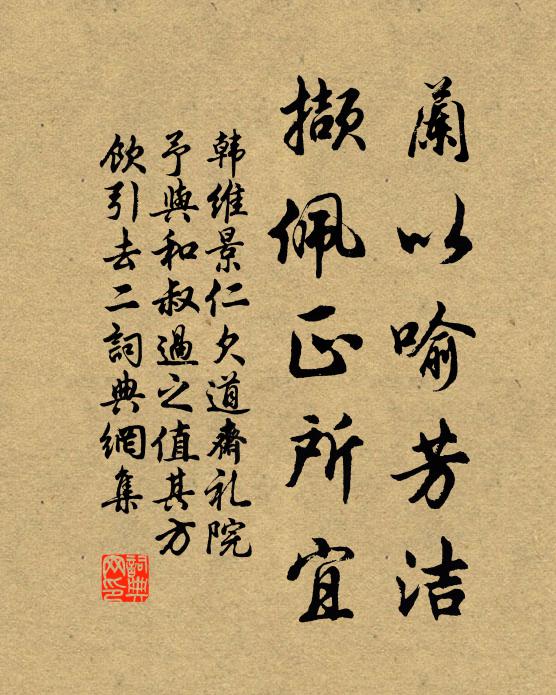 蘭以喻芳洁
擷佩正所宜
韩維景仁久道齋礼院
予與和叔過之值其方
飲引去二詞典網集
詞典网印